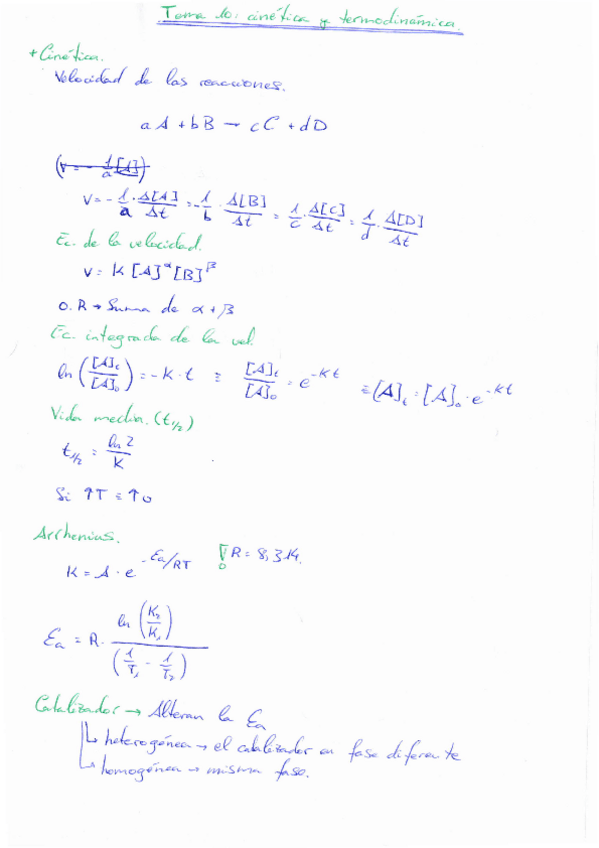 Tema 10: cinética y termodinámica.
+ Cinética.
Velocidad de las reacciones.
aA + bB → cC + dD
(V = - 1/a [A])
V = - 1/a · Δ[A]/Δt = - 1/b · Δ[B]/Δt = 1/c · Δ[C]/Δt = 1/d · Δ[D]/Δt
Ec. de la velocidad.
V = K [A]^α [B]^β
O.R → Suma de α + β
Ec. integrada de la vel.
ln ([A]t/[A]₀) = -K · t ≡ [A]t/[A]₀ = e^-Kt ≡ [A]t = [A]₀ · e^-Kt
Vida media. (t1/2)
t1/2 = ln 2/K
Si ↑T ≡ ↑
Arrhenius.
K = A · e^-Ea/RT R = 8,314.
Ea = R · ln (K₂/K₁)/(1/T₁ - 1/T₂)
Catalizador → Alteran la Ea
↳ heterogénea → el catalizador en fase diferente
↳ homogénea → misma fase.